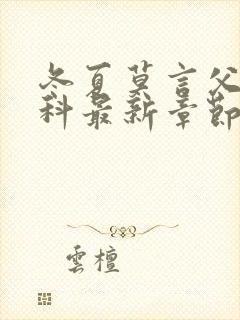 冬夏莫言父
科最新章節
雲檀